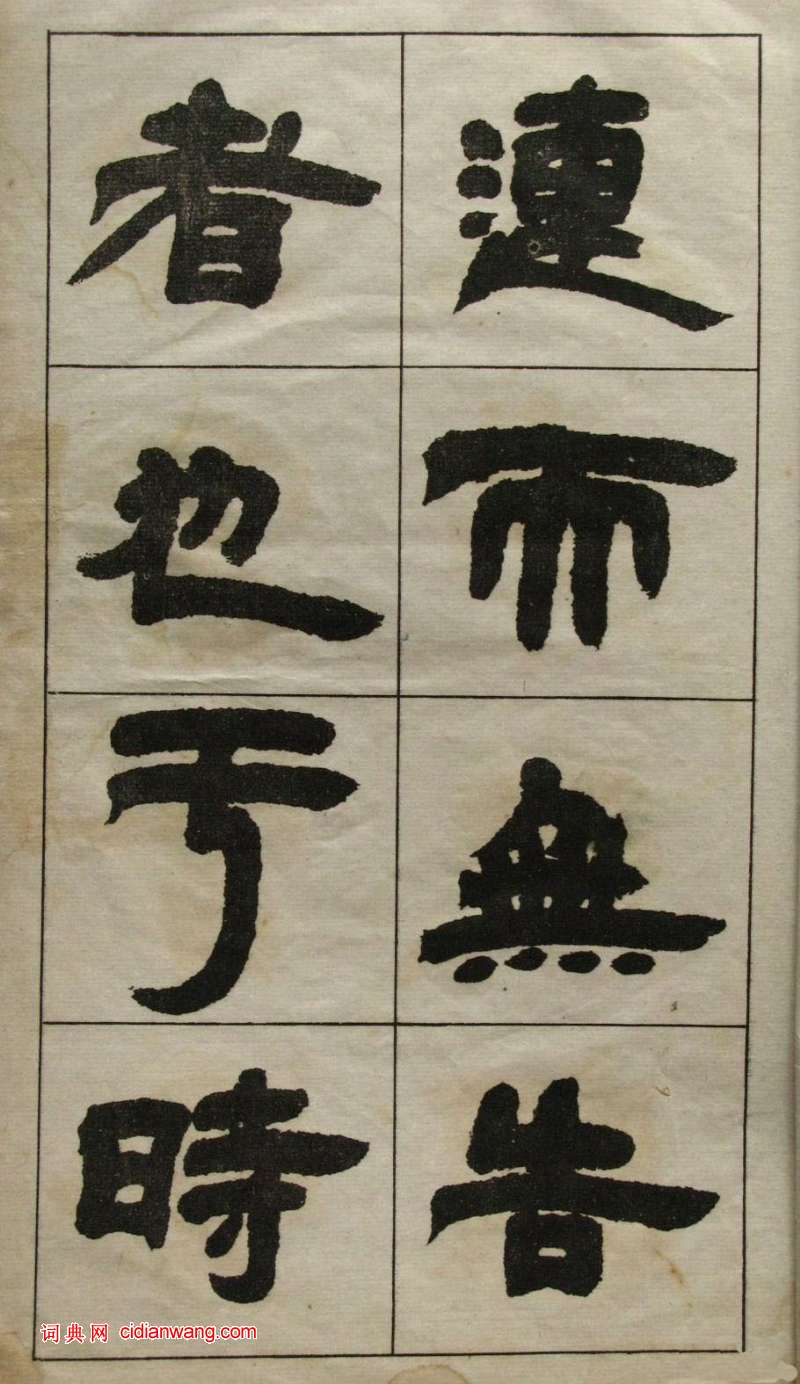 漣而無告
者也于時
词典网 cidianwang.com